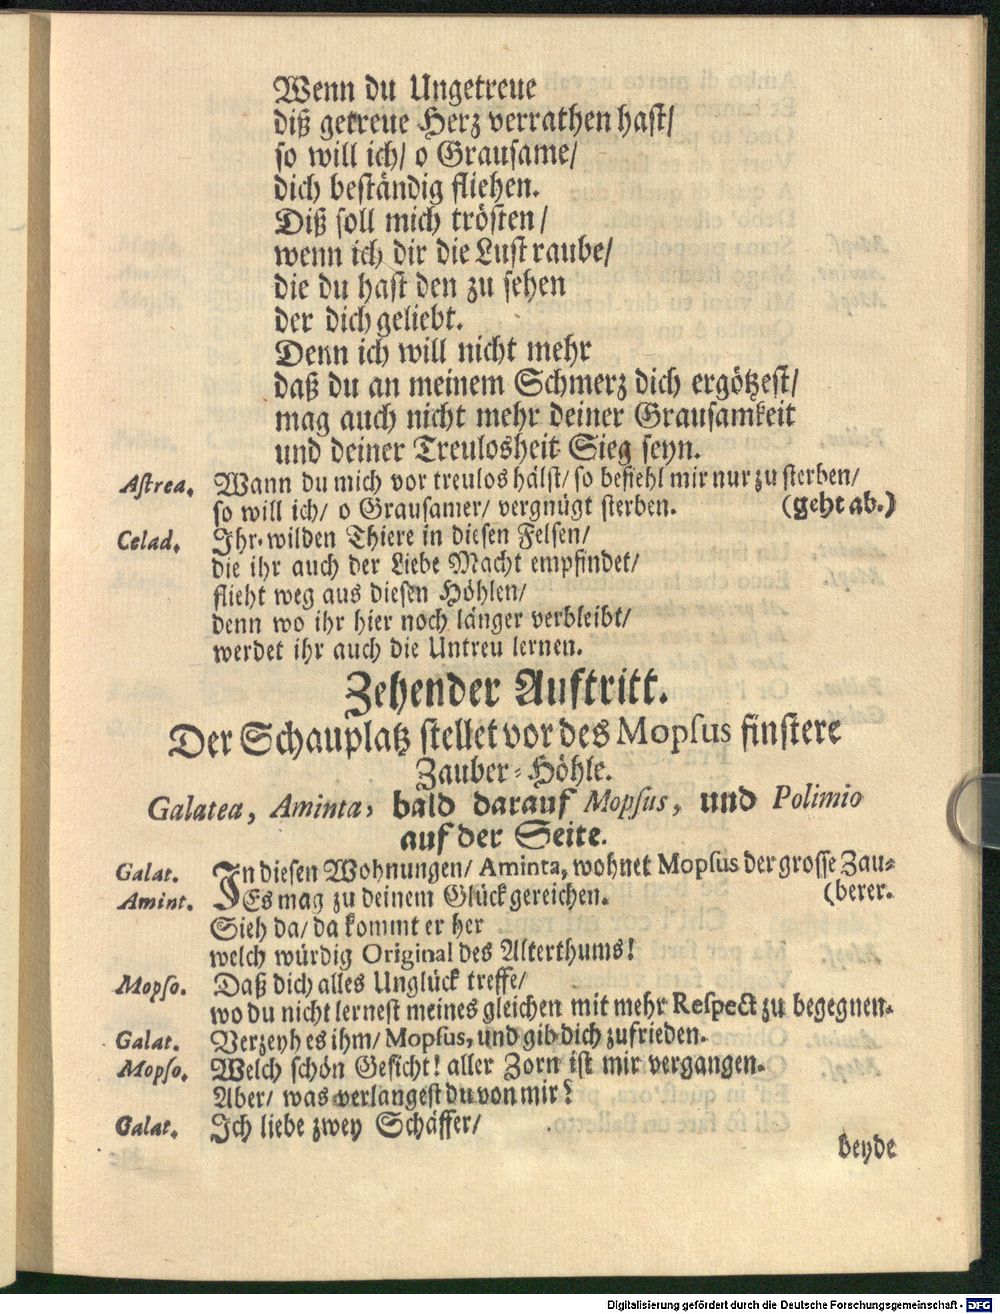 Wenn du Ungetreue
diß getreue Herz verrathen hast/
so will ich/ o Grausame/
dich beständig fliehen.
Diß soll mich trösten/
wenn ich dir die Lust raube/
die du hast den zu sehen
der dich geliebt.
Denn ich will nicht mehr
daß du an meinem Schmerz dich ergötzest/
mag auch nicht mehr deiner Grausamkeit
und deiner Treulosheit Sieg seyn.
Astrea. Wann du mich vor treulos hälst/ so befiehl mir nur zu sterben/
so will ich/ o Grausamer/ vergnügt sterben. (geht ab.)
Celad. Ihr wilden Thiere in diesen Felsen/
die ihr auch der Liebe Macht empfindet/
flieht weg aus diesen Höhlen/
denn wo ihr hier noch länger verbleibt/
werdet ihr auch die Untreu lernen.
Zehender Auftritt.
Der Schauplatz stellet vor des Mopsus finstere
Zauber-Höhle.
Galatea, Aminta, bald darauf Mopsus, und Polimio
auf der Seite.
Galat. In diesen Wohnungen/ Aminta, wohnet Mopsus der grosse Zau-
Amint. Es mag zu deinem Glück gereichen. (berer.
Sieh da/ da kommt er her
welch würdig Original des Alterthums!
Mopso. Daß dich alles Unglück treffe/
wo du nicht lernest meines gleichen mit mehr Respect zu begegnen.
Galat. Verzeyh es ihm/ Mopsus, und gib dich zufrieden.
Mopso. Welch schön Gesicht! aller Zorn ist mir vergangen.
Aber/ was verlangest du von mir?
Galat. Ich liebe zwey Schäffer/
beyde
Digitalisierung gefördert durch die Deutsche Forschungsgemeinschaft - DFG